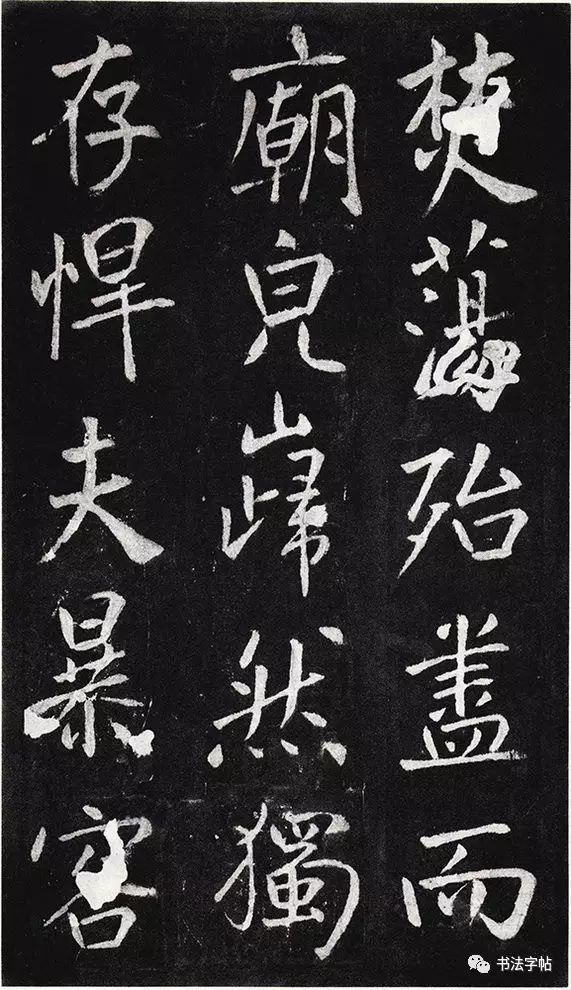 焚蕩殆盡而
廟皃巋然獨
存悍夫暴客
书法字帖